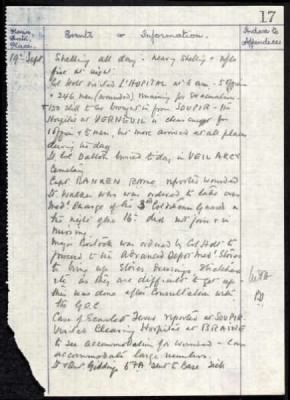 17
Hour, Date, Place.
Events & Information.
Reference to Appendices
19th Sept. Shelling all day. Heavy shelling & rifle
fire at night.
Col Holt visited ST HOPITAL at 6 am. 5 Offrs
+ 246 men (wounded) remaining for evacuation
150 still to be brought in from SOUPIR - the
Hospital at VERNEUIL is clear except for
16 offrs + 5 men, but more arrived at all places
during the day.
Lt Col Dalton buried today in VEIL ARCY
Cemetery
Capt RANKEN RAMC reported wounded
Lt Walker who was ordered to take over
Med. Charge of the 3rd Coldstream Guards on
the night of the 16th did not join & is
missing.
Major Barbook was ordered by Col Holt to
proceed to the Advanced Depot Med. Stores
to bring up Stores Dressings Stretchers
etc as they are difficult to get up
this was done after consultation with
the G.O.C.
Case of Scarlet Fever reported at SOUPIR
Visited Clearing Hospital at BRAINE
to see accommodation for wounded - can
accommodate large numbers.
Giddings 5 FA sent to Base Sick